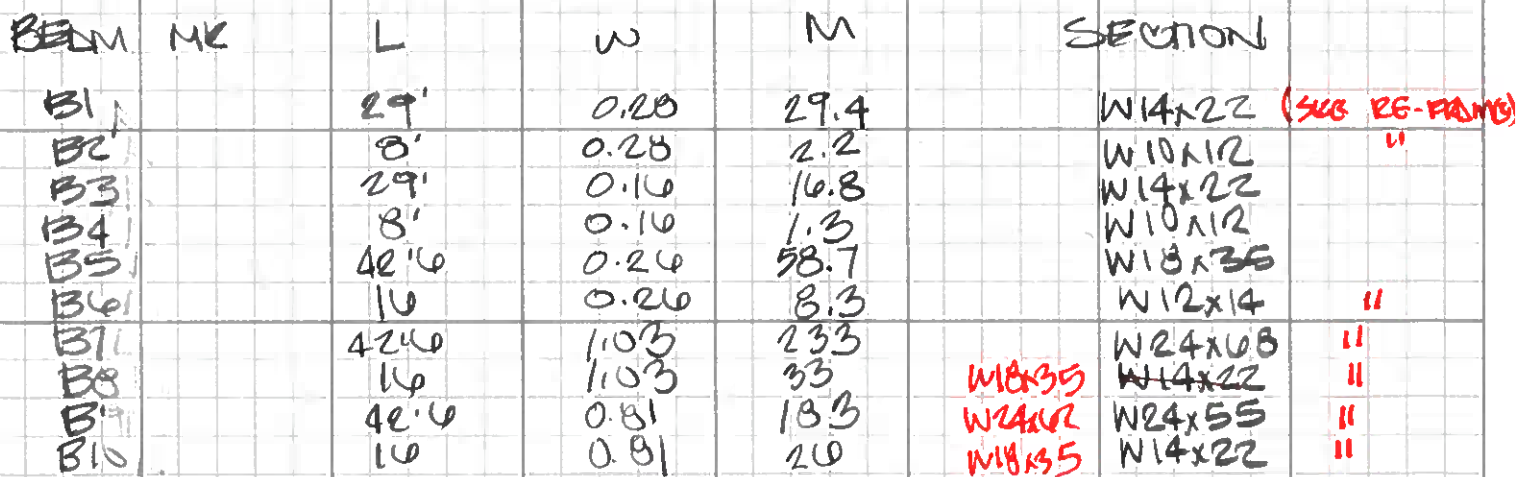 BEAM MK L W M SECTION
B1 29' 0.28 29.4 W14x22 (SEE RE-FRAMG)
B2 8' 0.28 2.2 W10x12 "
B3 29' 0.16 16.8 W14x22
B4 8' 0.16 1.3 W10x12
B5 42'6 0.26 58.7 W18x35
B6 16 0.26 8.3 W12x14 "
B7 42'6 1.03 233 W24x68 "
B8 16 1.03 33 W18x35 W14x22 "
B9 42'6 0.81 183 W24x62 W24x55 "
B10 16 0.81 26 W18x35 W14x22 "